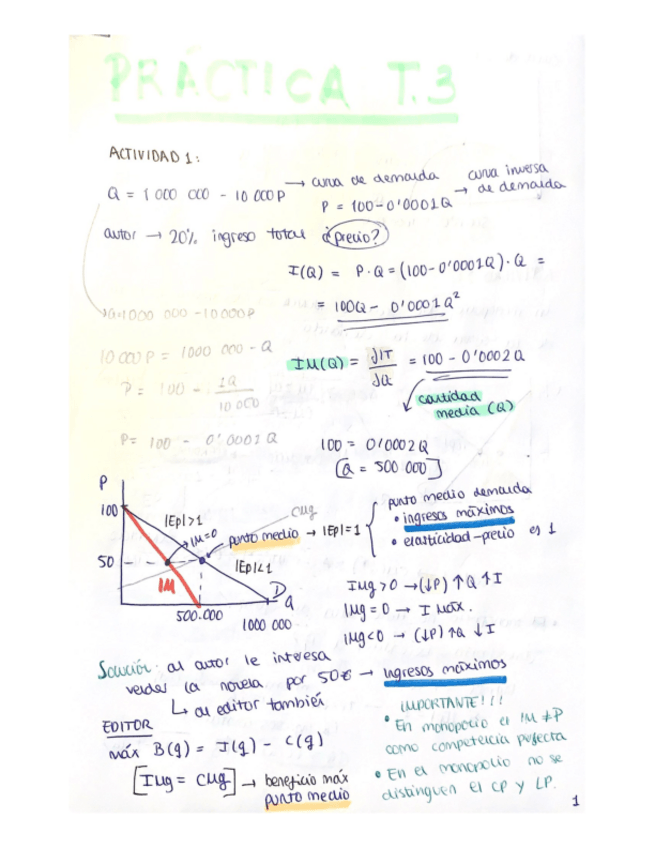 PRÁCTICA T.3
ACTIVIDAD 1:
Q = 1 000 000 - 10 000P → curva de demanda
P = 100-0'0001Q → curva inversa de demanda
autor → 20% ingreso total ¿precio?
I(Q) = P·Q = (100-0'0001Q)·Q =
= 100Q - 0'0001Q²
Q=1000 000 -10000P
10 000P = 1000 000 - Q
P = 100 - 1Q / 10 000
P= 100 - 0'0001Q
IM(Q) = JIT / JQ = 100 - 0'0002Q
cantidad media (Q)
100 = 0'0002Q
[Q = 500 000]
P
100
50
|Ep|>1
IM=0
CMg
punto medio → |Ep|=1
|Ep|<1
IM
D
Q
500.000
1000 000
punto medio demanda
• ingresos máximos
• elasticidad-precio es 1
IMg>0 →(↓P) ↑Q ↑I
IMg = 0 → I máx.
IMg<0 → (↓P) ↑Q ↓I
Solución: al autor le interesa
vender la novela por 50€ → ingresos máximos
↳ al editor también
EDITOR
máx B(q) = I(q) - C(q)
[IMg = CMg] → beneficio máx
punto medio
IMPORTANTE!!!
• En monopolio el IM ≠ P
como competencia perfecta
• En el monopolio no se
distinguen el CP y LP.
1